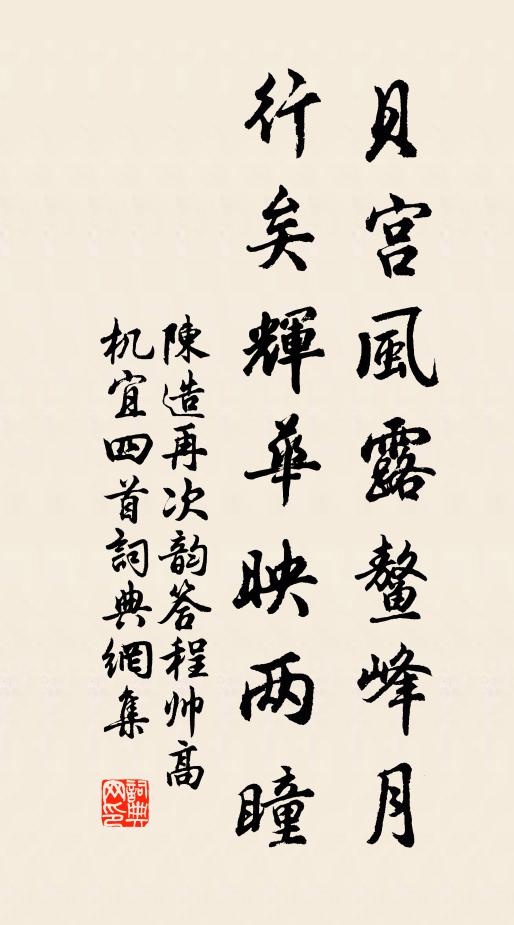 貝宮風露鼇峰月
行矣輝華映两瞳
陳造再次韵答程帅高
机宜四首詞典網集
詞典网印